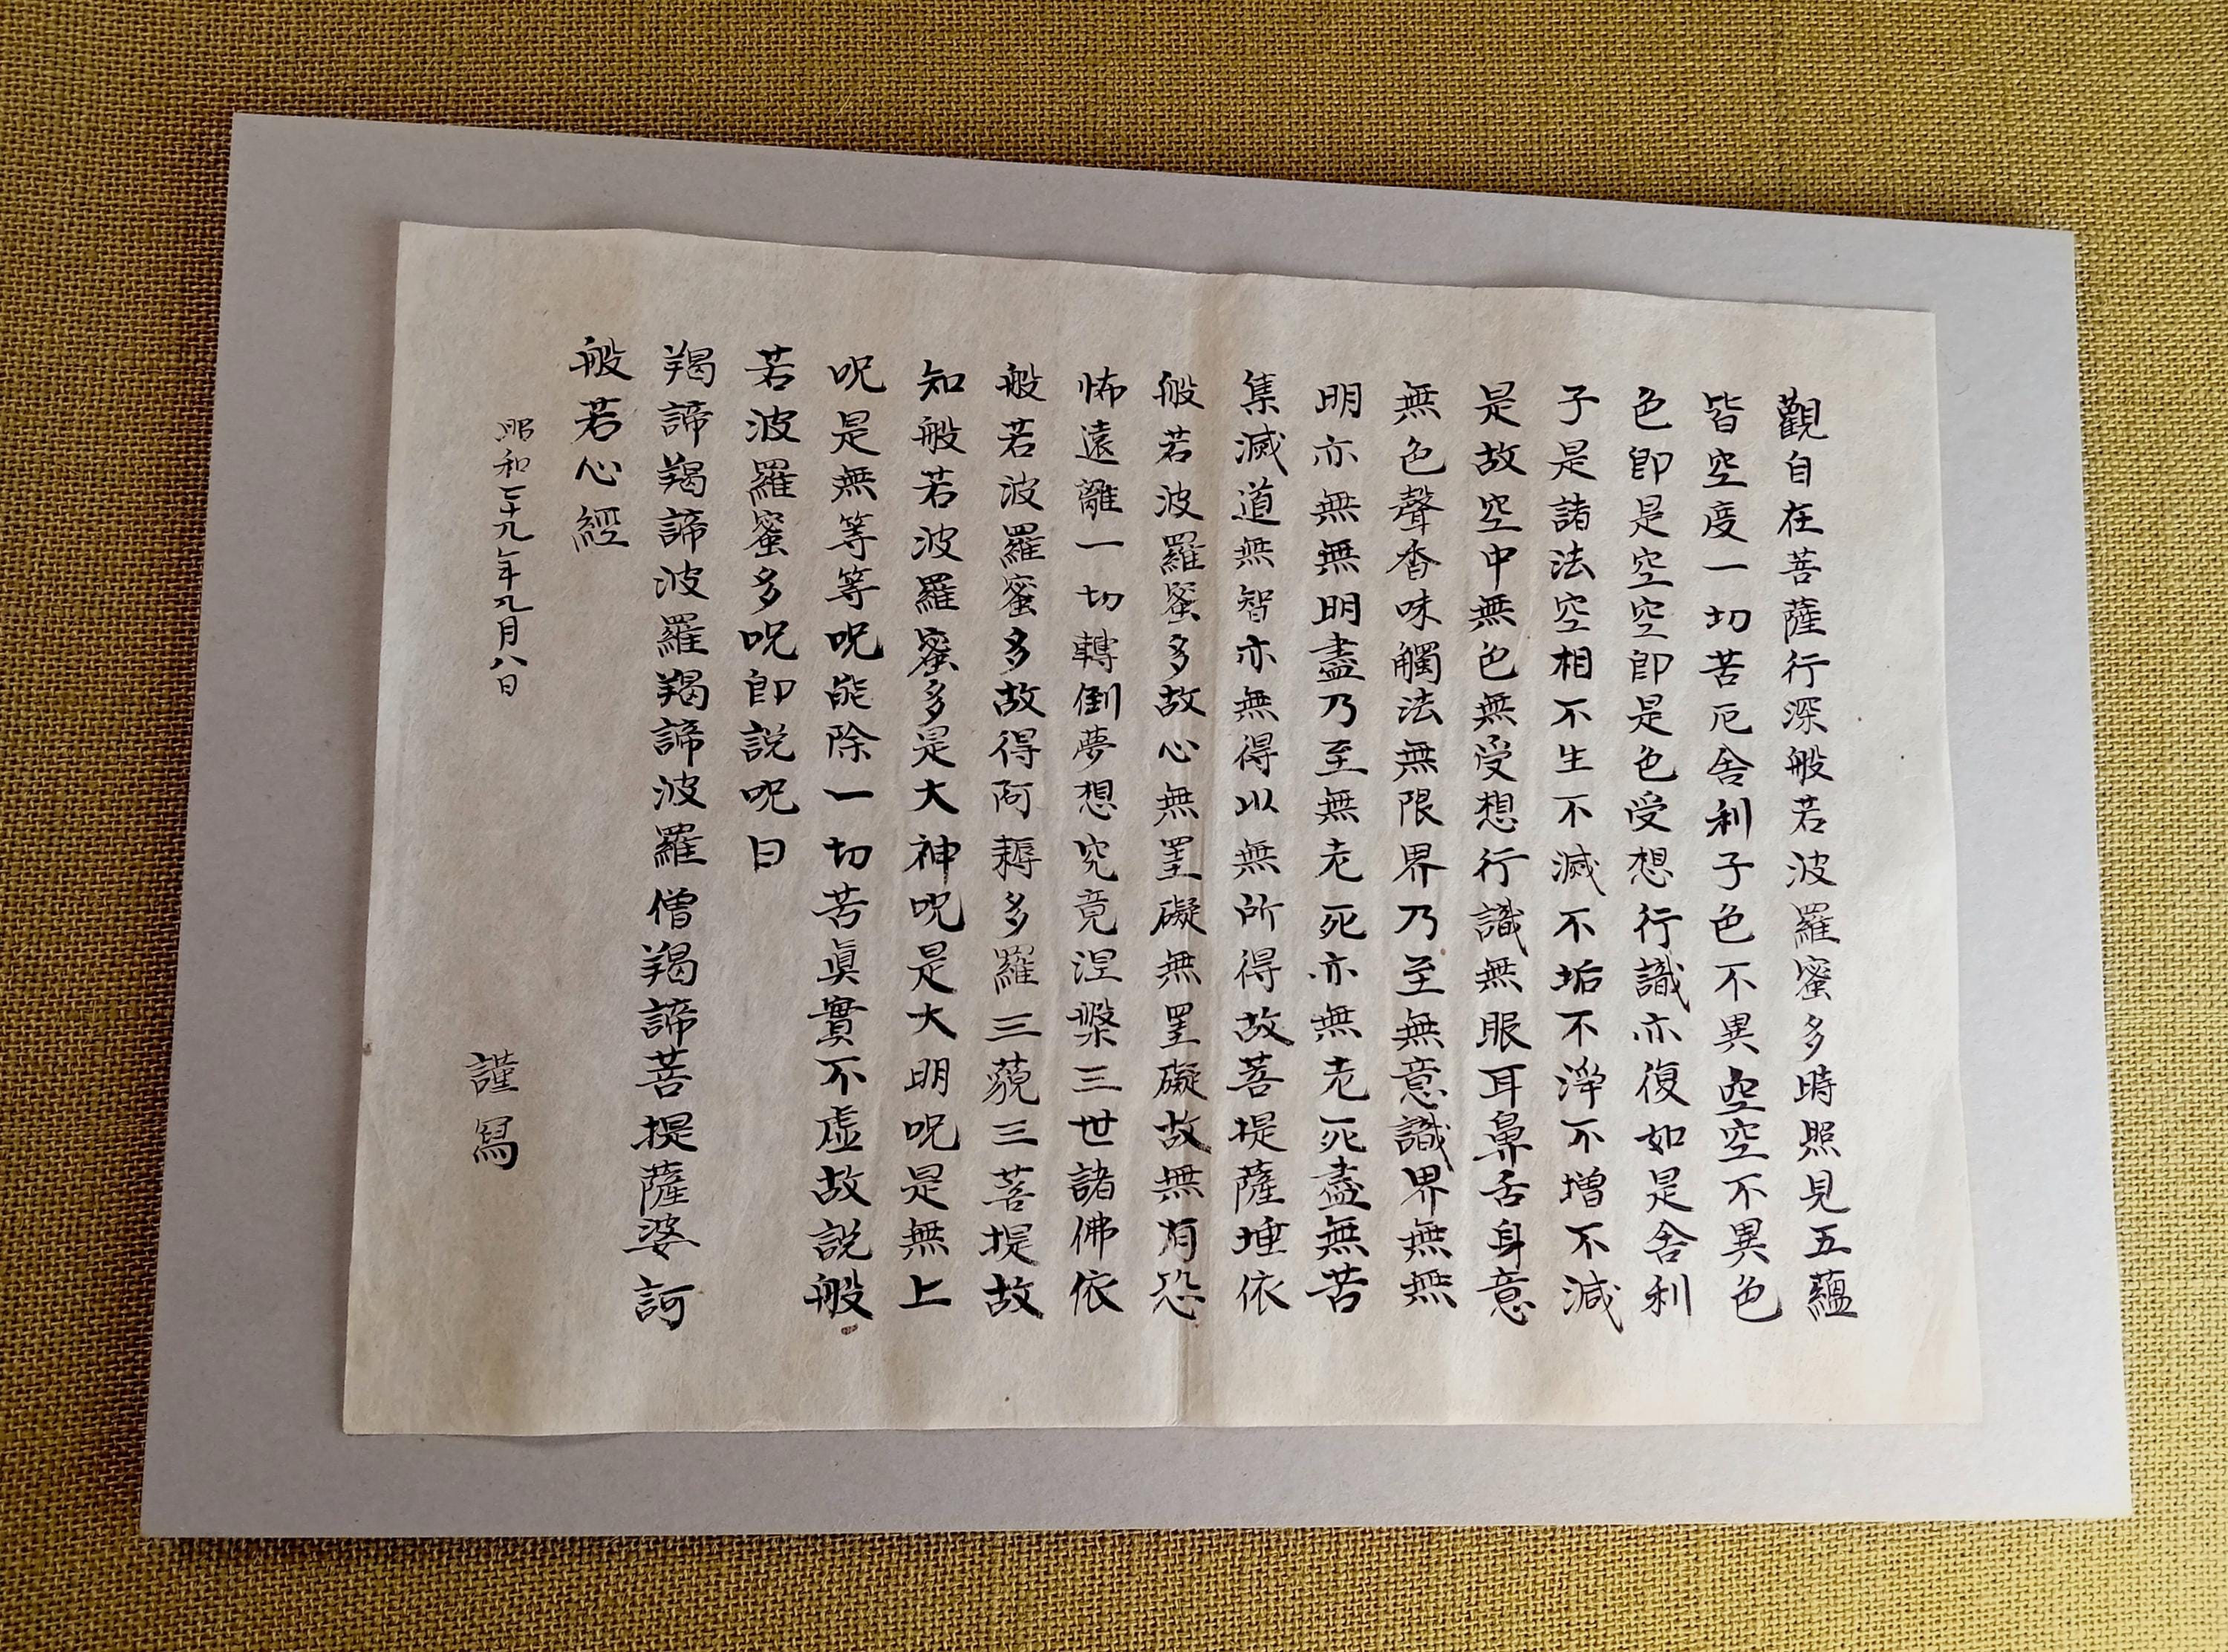 觀自在菩薩行深般若波羅蜜多時照見五蘊
皆空度一切苦厄舎利子色不異空空不異色
色即是空空即是色受想行識亦復如是舎利
子是諸法空相不生不滅不垢不淨不增不減
是故空中無色無受想行識無眼耳鼻舌身意
無色聲香味觸法無限界乃至無意識界無無
明亦無無明盡乃至無老死亦無老死盡無苦
集滅道無智亦無得以無所得故菩提薩埵依
般若波羅蜜多故心無罣礙無罣礙故無有恐
怖遠離一切轉倒夢想究竟涅槃三世諸佛依
般若波羅蜜多故得阿耨多羅三藐三菩提故
知般若波羅蜜多是大神呪是大明呪是無上
呪是無等等呪能除一切苦眞實不虚故説般
若波羅蜜多呪即説呪曰
羯諦羯諦波羅羯諦波羅僧羯諦菩提薩婆訶
般若心經
昭和三十九年九月八日
謹寫